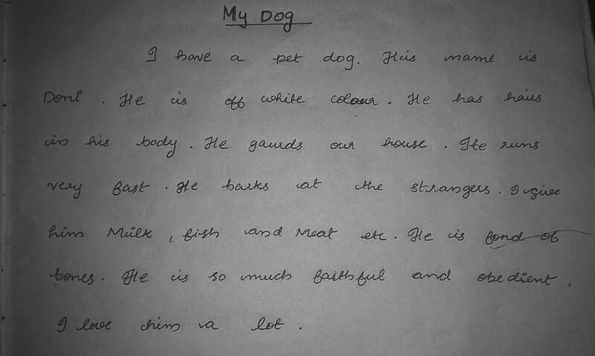 My Dog
I have a pet dog. His name is
Doni. He is off white colour. He has hairs
in his body. He gaurds our house. He runs
very fast. He barks at the strangers. I give
him Milk, fish and Meat etc. He is fond of
bones. He is so much faithful and obedient.
I love him a lot.